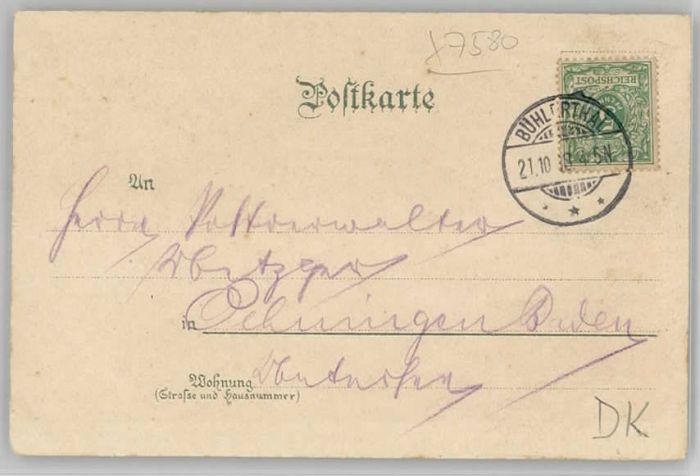 J7580
Postkarte
REICHSPOST
BÜHLERTHAL
21.10 4-5N
An
Herrn Postverwalter
Metzger
in Oehningen Baden
Wohnung Untersee
(Strasse und Hausnummer)
DK